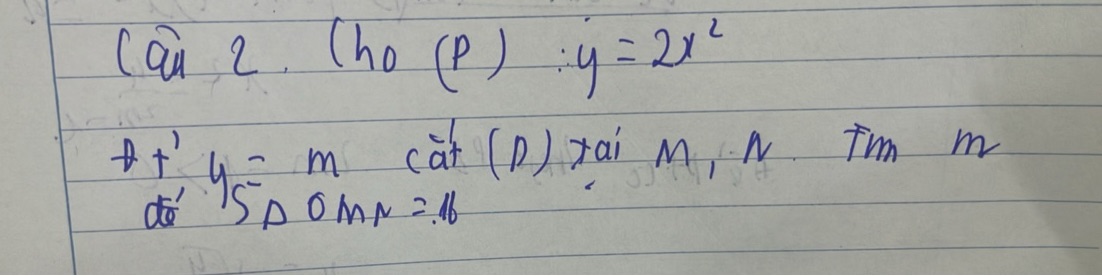 Câu 2. Cho (P) : y = 2x²
Đt' y = m cắt (P) tại M, N. Tìm m
để SΔOMN = 16